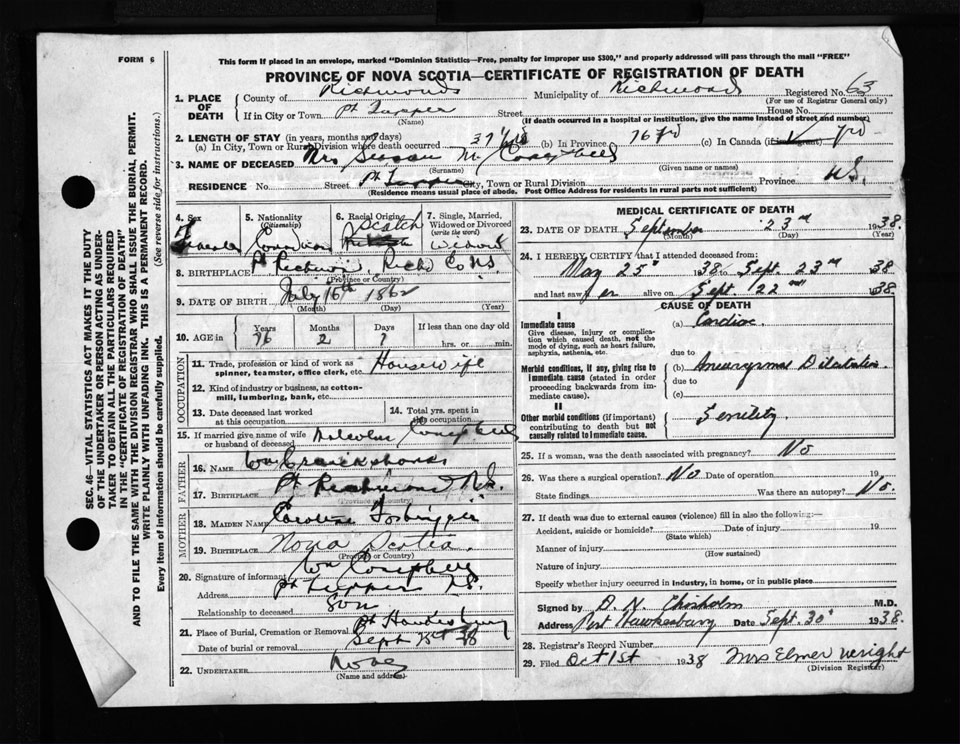 FORM 6
This form if placed in an envelope, marked "Dominion Statistics—Free, penalty for improper use $300," and properly addressed will pass through the mail "FREE"
PROVINCE OF NOVA SCOTIA—CERTIFICATE OF REGISTRATION OF DEATH
SEC. 46—VITAL STATISTICS ACT MAKES IT THE DUTY
OF THE UNDERTAKER OR PERSON ACTING AS UNDER-
TAKER TO OBTAIN ALL THE PARTICULARS REQUIRED
IN THE "CERTIFICATE OF REGISTRATION OF DEATH"
AND TO FILE THE SAME WITH THE DIVISION REGISTRAR WHO SHALL ISSUE THE BURIAL PERMIT.
WRITE PLAINLY WITH UNFADING INK. THIS IS A PERMANENT RECORD.
Every item of information should be carefully supplied. (See reverse side for instructions.)
1. PLACE OF DEATH
County of Richmond Municipality of Richmond Registered No. 63
(For use of Registrar General only)
If in City or Town Pt Tupper Street House No.
(Name) (If death occurred in a hospital or institution, give the name instead of street and number)
2. LENGTH OF STAY (in years, months and days)
(a) In City, Town or Rural Division where death occurred 37 yrs (b) In Province 76 yrs (c) In Canada (if immigrant) yrs
3. NAME OF DECEASED Mrs Susan M. Campbell
(Surname) (Given name or names)
RESIDENCE No. Street Pt Tupper City, Town or Rural Division Province N.S.
(Residence means usual place of abode. Post Office Address for residents in rural parts not sufficient)
4. Sex Female
5. Nationality (Citizenship) Canadian
6. Racial Origin Scotch
7. Single, Married, Widowed or Divorced (write the word) Widow
8. BIRTHPLACE Pt Richmond Rich. Co N.S.
(Province or Country)
9. DATE OF BIRTH July 16th 1862
(Month) (Day) (Year)
10. AGE in Years 76 Months 2 Days 7 If less than one day old hrs. or min.
OCCUPATION
11. Trade, profession or kind of work as spinner, teamster, office clerk, etc. Housewife
12. Kind of industry or business, as cotton-mill, lumbering, bank, etc.
13. Date deceased last worked at this occupation
14. Total yrs. spent in the occupation
15. If married give name of wife or husband of deceased Malcolm Campbell
FATHER
16. NAME Wm
17. BIRTHPLACE Pt Richmond N.S.
(Province or Country)
MOTHER
18. MAIDEN NAME Caroline
19. BIRTHPLACE Nova Scotia
(Province or Country)
20. Signature of informant Wm Campbell
Address Pt Tupper N.S.
Relationship to deceased Son
21. Place of Burial, Cremation or Removal Pt Hawkesbury
Date of burial or removal Sept 25th 38
22. UNDERTAKER None
(Name and address)
MEDICAL CERTIFICATE OF DEATH
23. DATE OF DEATH September 23rd 1938
(Month) (Day) (Year)
24. I HEREBY CERTIFY that I attended deceased from:
May 25th 1938 to Sept. 23rd 1938
and last saw her alive on Sept. 22nd 1938
CAUSE OF DEATH
I
Immediate cause
Give disease, injury or complication which caused death, not the mode of dying, such as heart failure, asphyxia, asthenia, etc.
(a) Cardiac
due to
Morbid conditions, if any, giving rise to immediate cause (stated in order proceeding backwards from immediate cause).
(b) Aneurysmal Dilatation
due to
(c)
II
Other morbid conditions (if important) contributing to death but not causally related to immediate cause.
Senility
25. If a woman, was the death associated with pregnancy? No
26. Was there a surgical operation? No Date of operation 19
State findings Was there an autopsy? No.
27. If death was due to external causes (violence) fill in also the following:—
Accident, suicide or homicide? Date of injury 19
(State which)
Manner of injury
(How sustained)
Nature of injury
Specify whether injury occurred in industry, in home, or in public place
Signed by D. N. Chisholm M.D.
Address Port Hawkesbury Date Sept. 30 1938
28. Registrar's Record Number
29. Filed Oct 1st 1938 Mrs Elmer Wright
(Division Registrar)